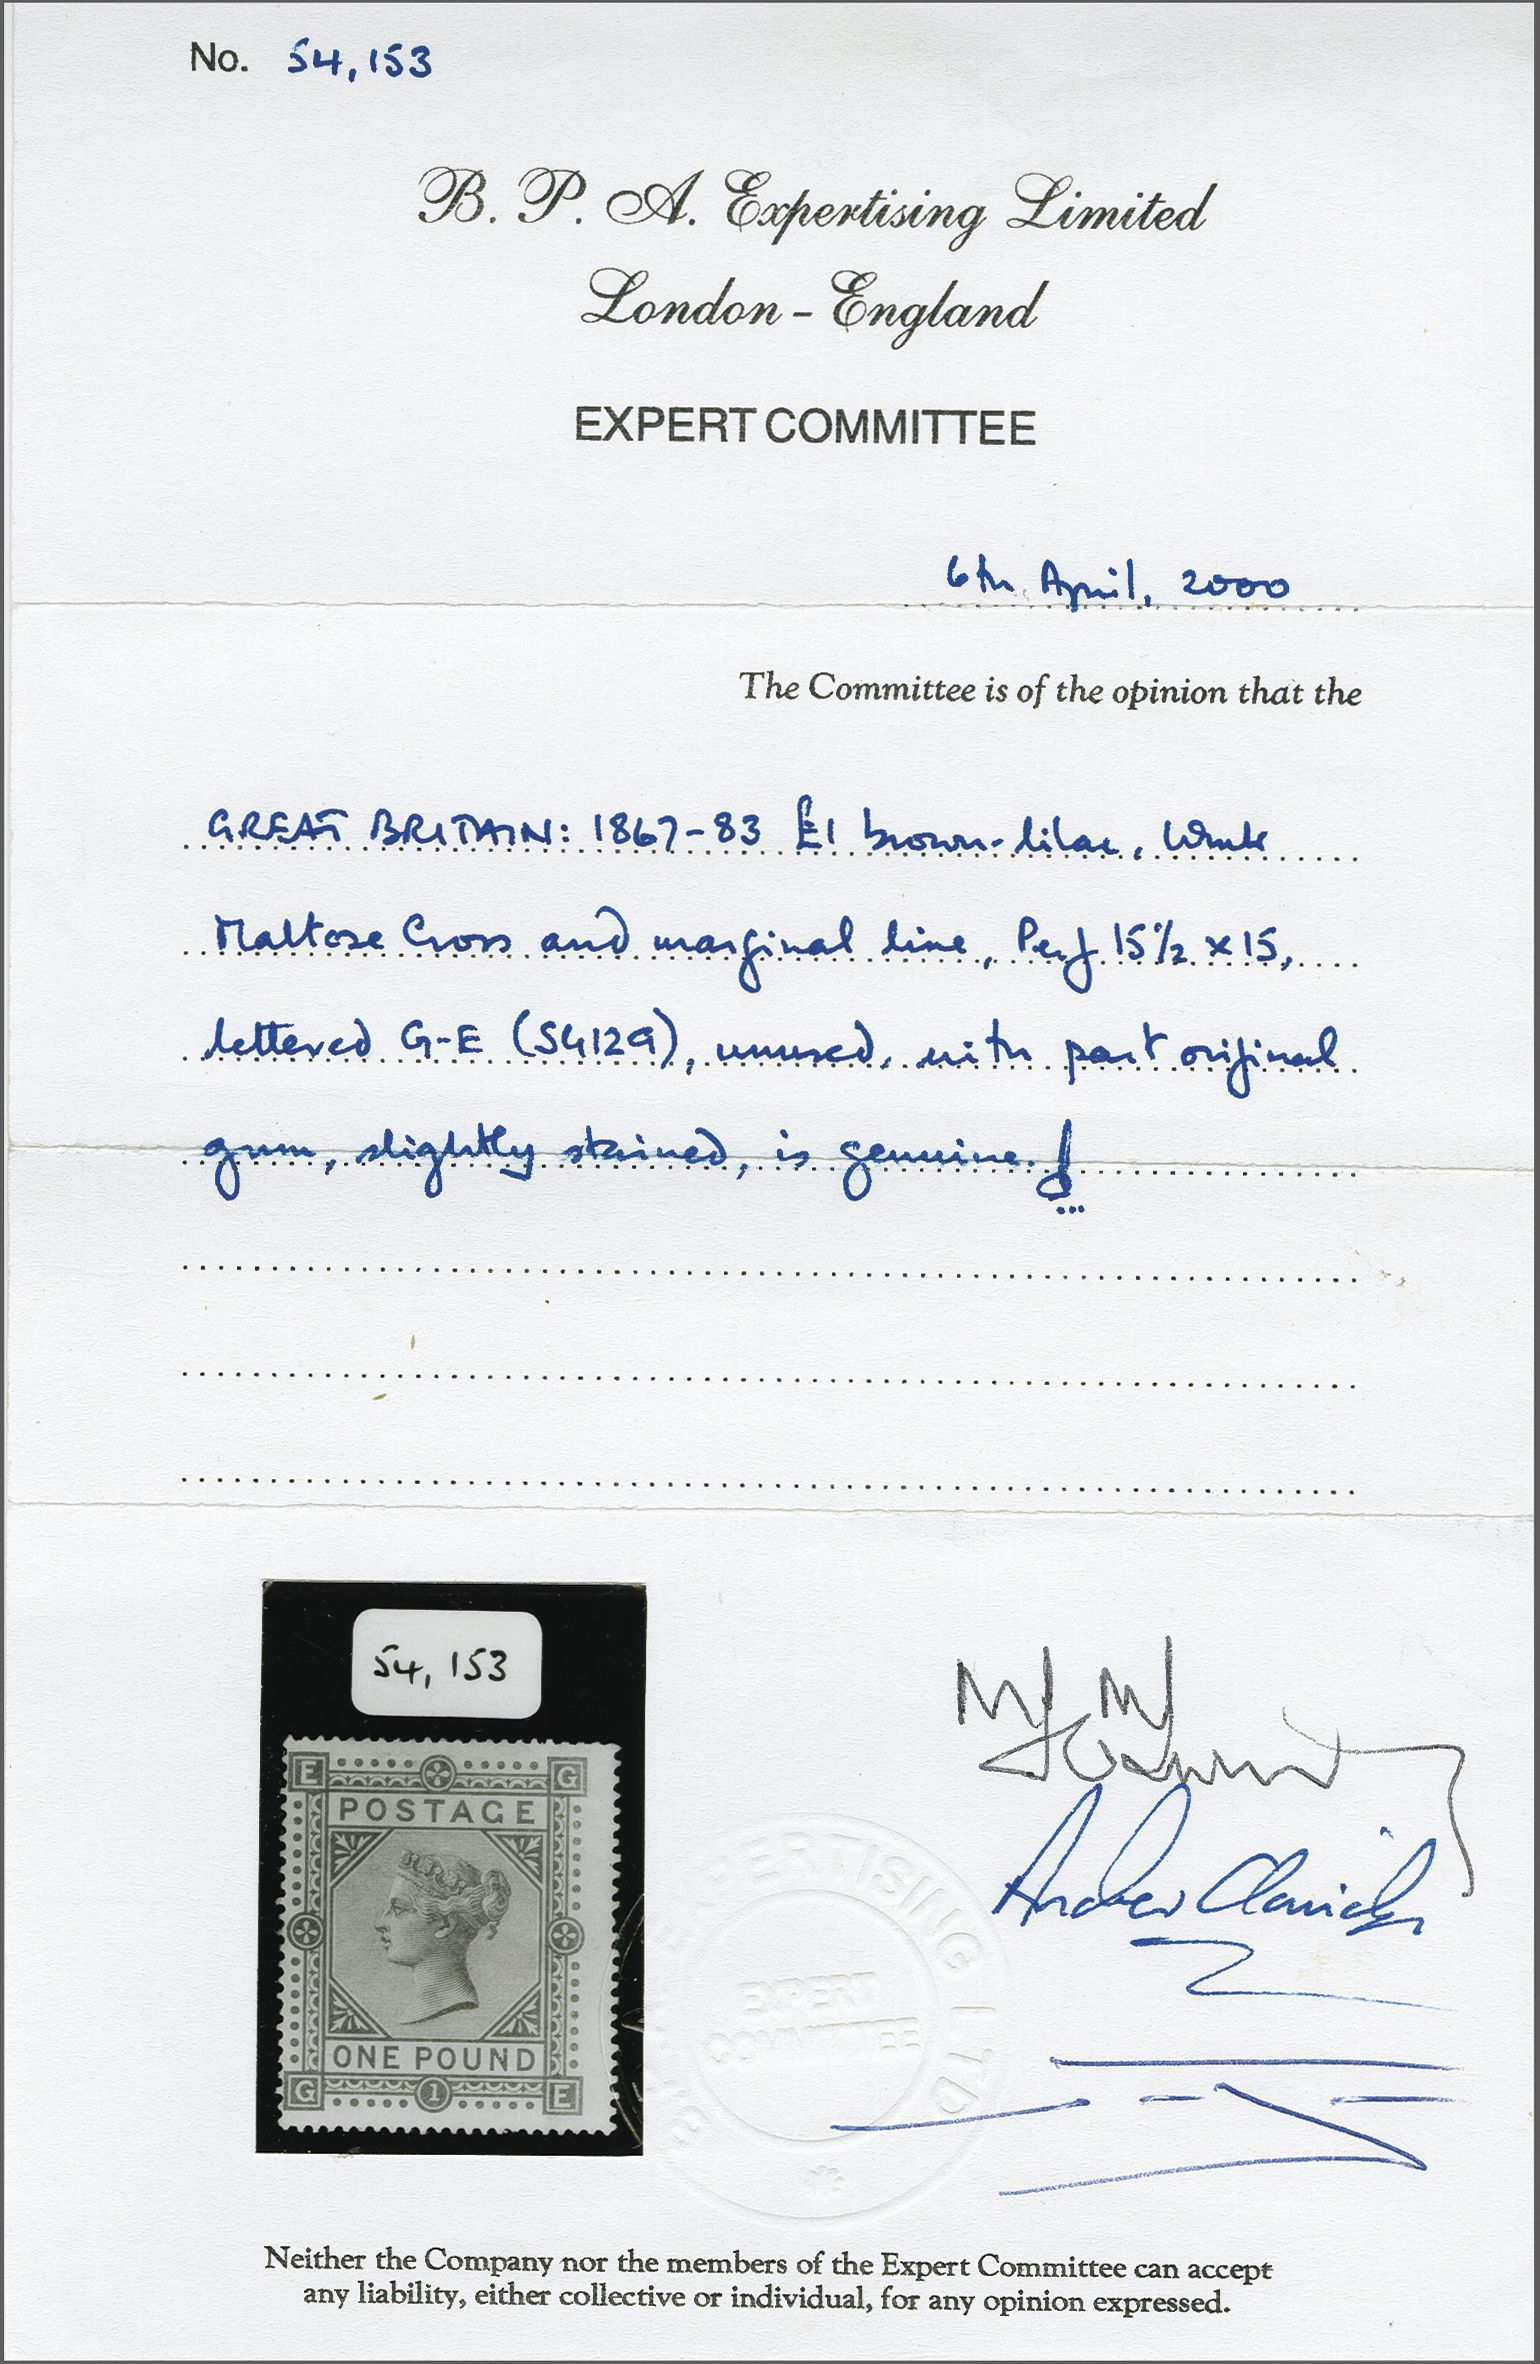 No. 54,153
B. P. A. Expertising Limited
London - England
EXPERT COMMITTEE
6th April, 2000
The Committee is of the opinion that the
GREAT BRITAIN: 1867-83 £1 brown-lilac, Wmk
Maltese Cross and marginal line, Perf 15½ x 15,
lettered G-E (SG129), unused, with part original
gum, slightly stained, is genuine.
54, 153
E G
POSTAGE
ONE POUND
G 1 E
EXPERTISING LTD
EXPERT
COMMITTEE
Andrew
Neither the Company nor the members of the Expert Committee can accept
any liability, either collective or individual, for any opinion expressed.